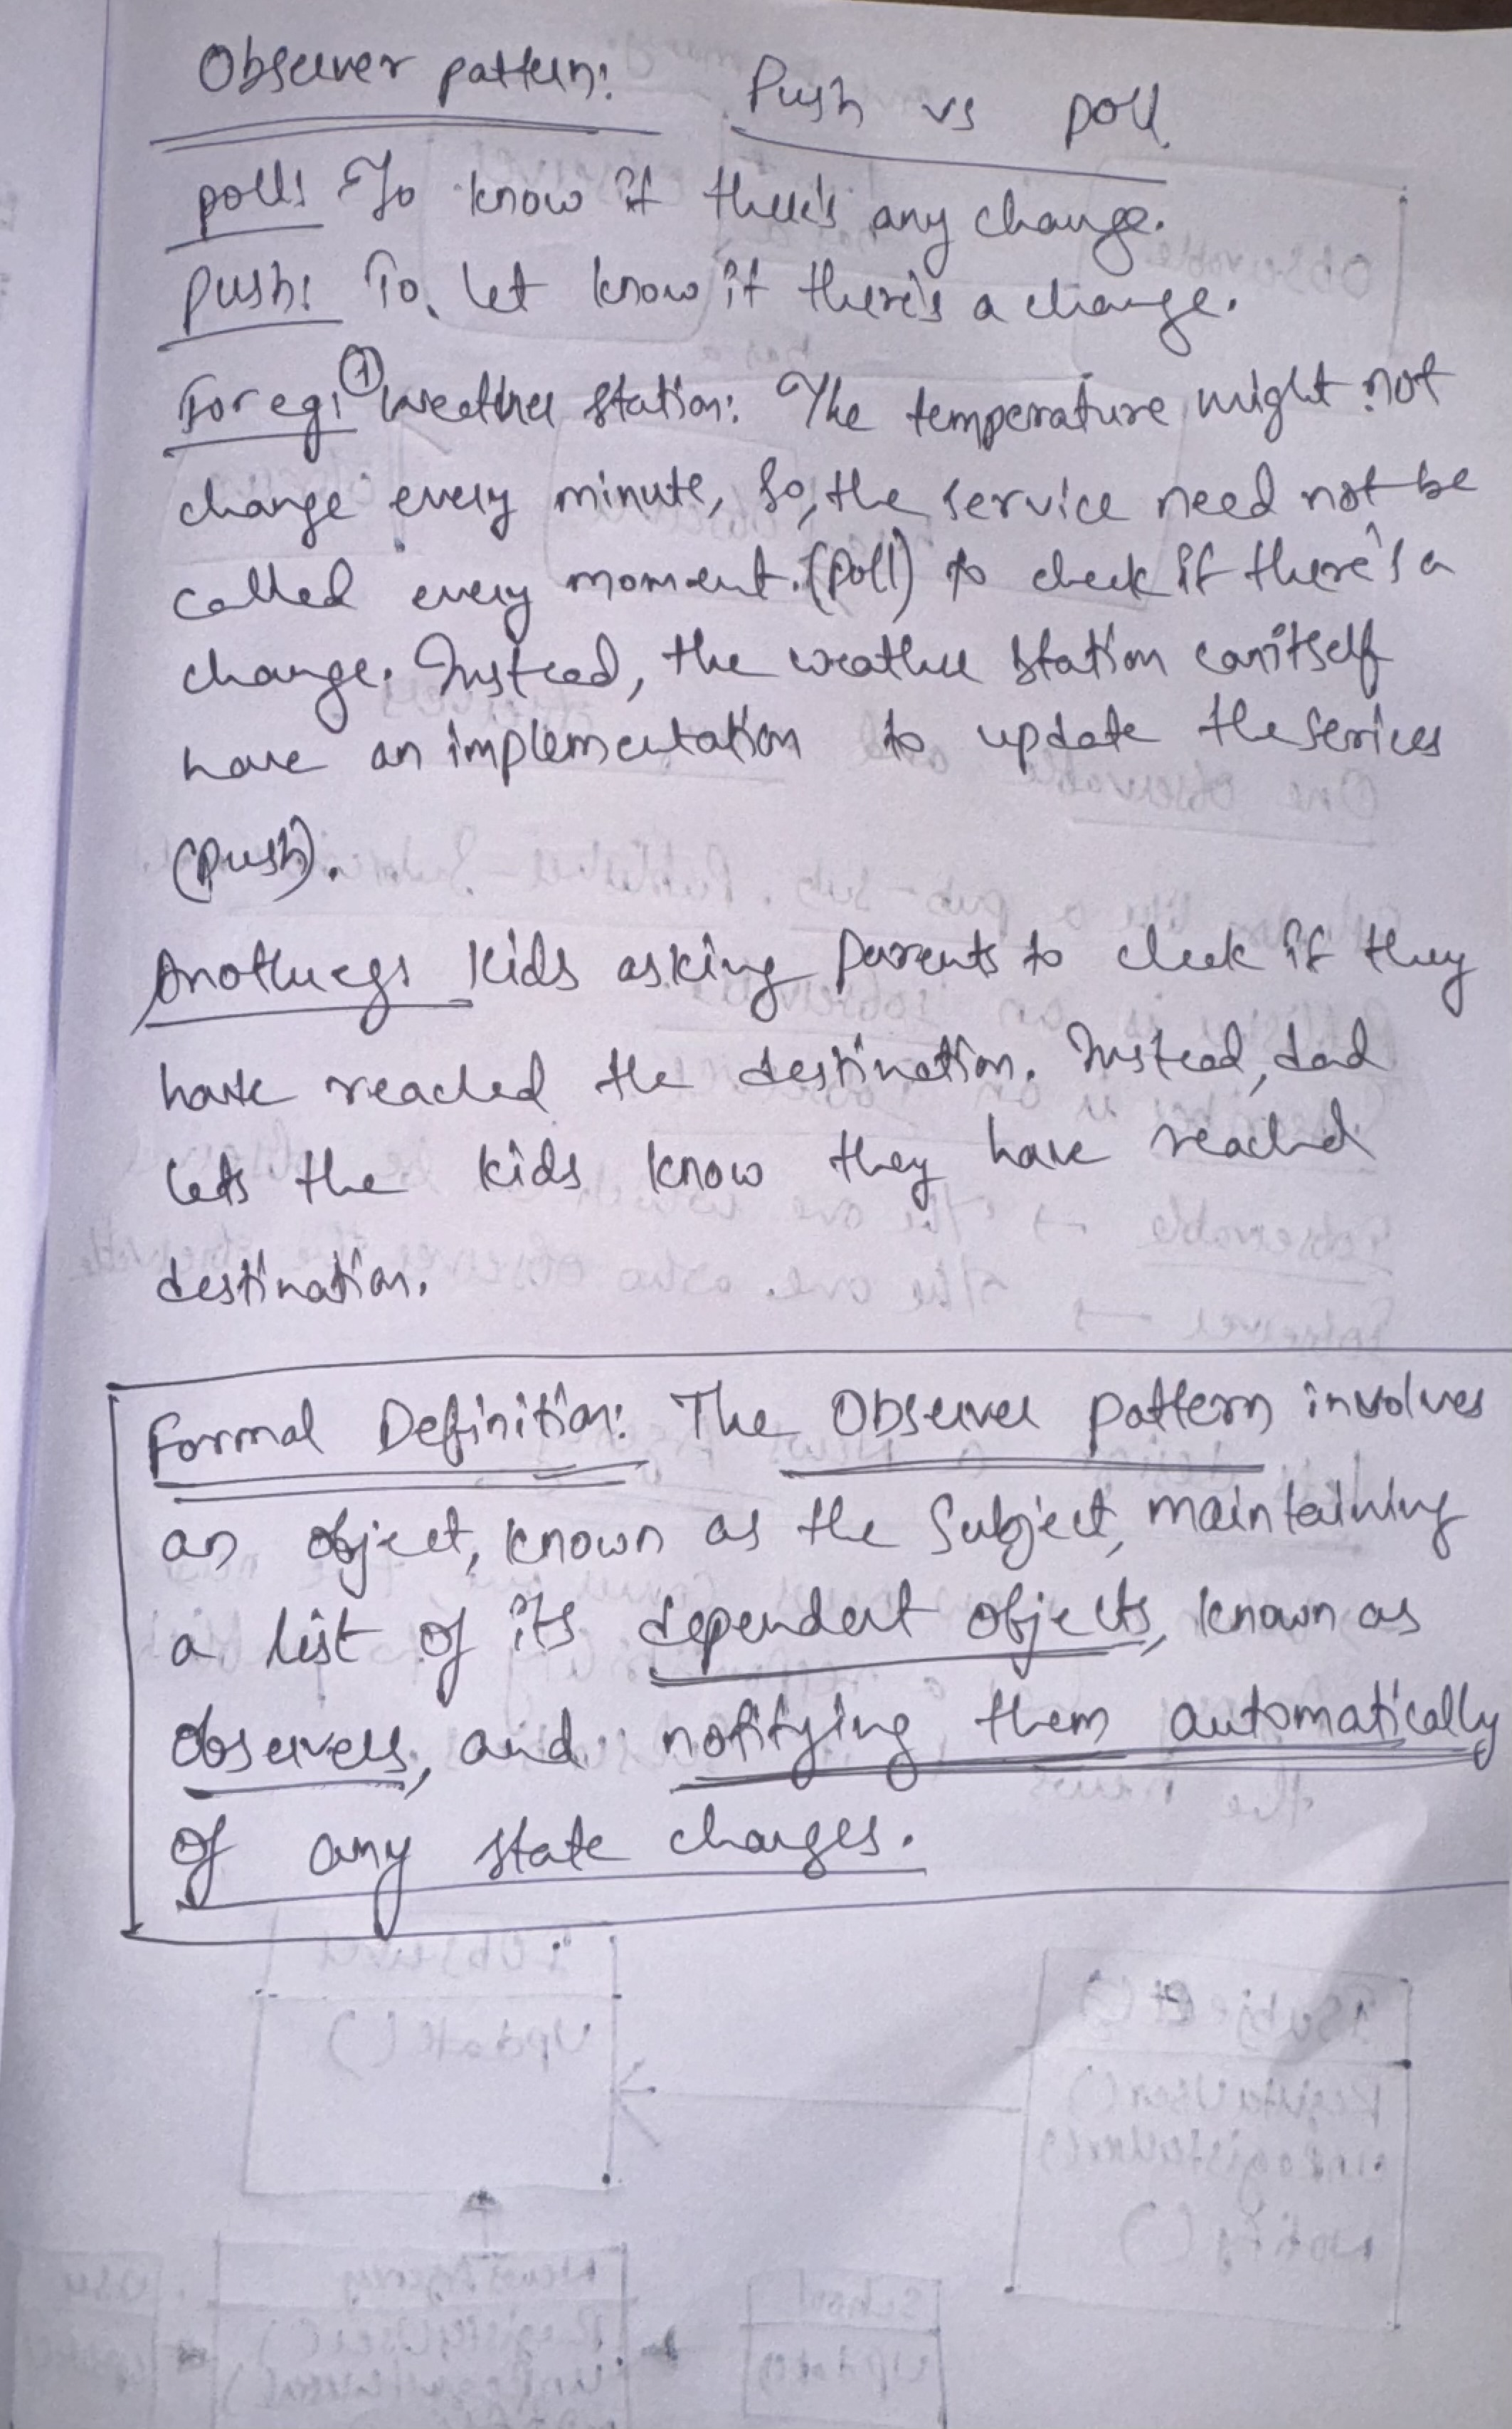 Observer pattern: Push vs poll
poll: To know if there's any change.
push: To let know if there's a change.
For eg: ① Weather station: The temperature might not
change every minute, So, the service need not be
called every moment. (poll) to check if there's a
change. Instead, the weather station can itself
have an implementation to update the services
(push).
Another eg: Kids asking parents to check if they
have reached the destination. Instead, dad
lets the kids know they have reached
destination.
Formal Definition: The Observer pattern involves
an object, known as the Subject, maintaining
a list of its dependent objects, known as
observers, and notifying them automatically
of any state changes.